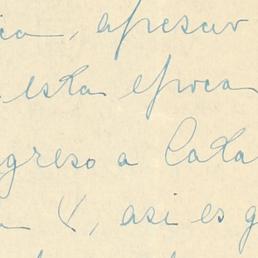 ica, apesar
esta epoca
greso a Cata
Y, asi es g